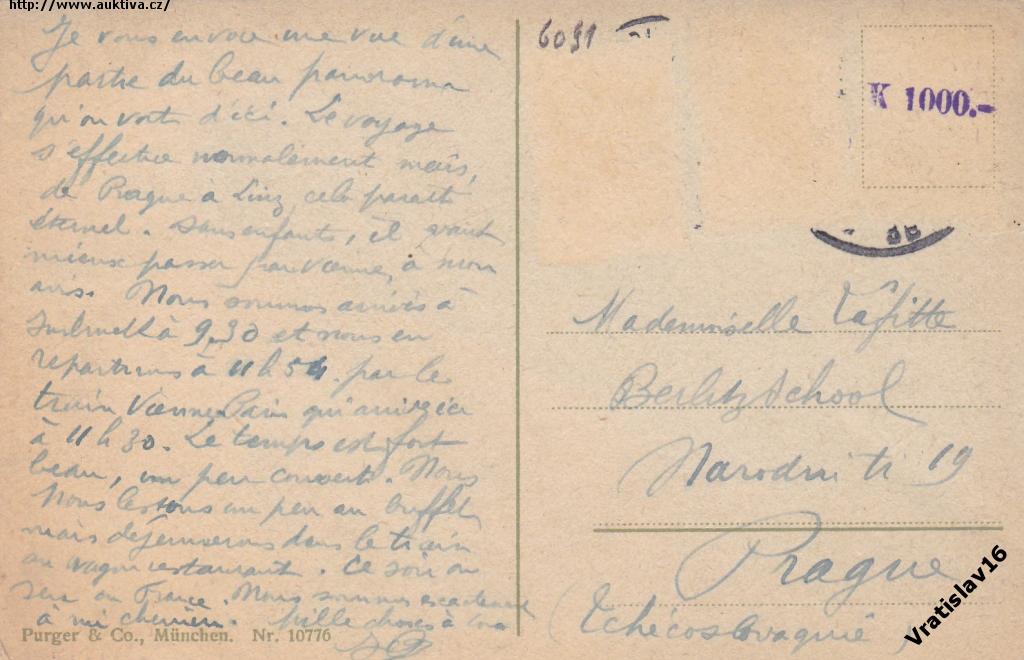 http://www.auktiva.cz/
Je vous envoie une vue d'une
partie du beau panorama
qu'on voit d'ici. Le voyage
s'effectue normalement mais,
de Prague à Linz cela paraît
éternel. Sans enfants, il vaut
mieux passer par Vienne, à mon
avis. Nous sommes arrivés à
à 9.30 et nous en
repartirons à 11 h 54 par le
train Vienne Paris qui arrive ici
à 11 h 30. Le temps est fort
beau, un peu couvert. Nous
Nous un peu au buffet
mais déjeunerons dans le train
au wagon restaurant. Ce soir on
sera en France. Nous sommes
à mi chemin. Mille choses à
6091
K 1000.-
Mademoiselle Lafitte
Berlitz School
Narodni tř 19
Prague
Tchécoslovaquie
Purger & Co., München. Nr. 10776
Vratislav16